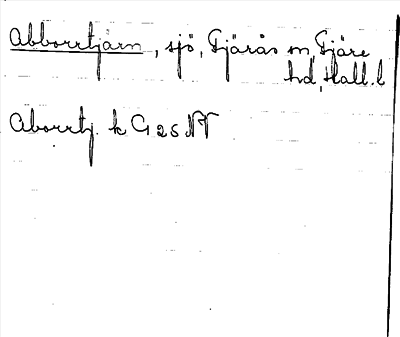 Abborrtjärn, sjö, Fjärås sn, Fjäre
hd, Hall. l
Aborrtj. k G 26 NV